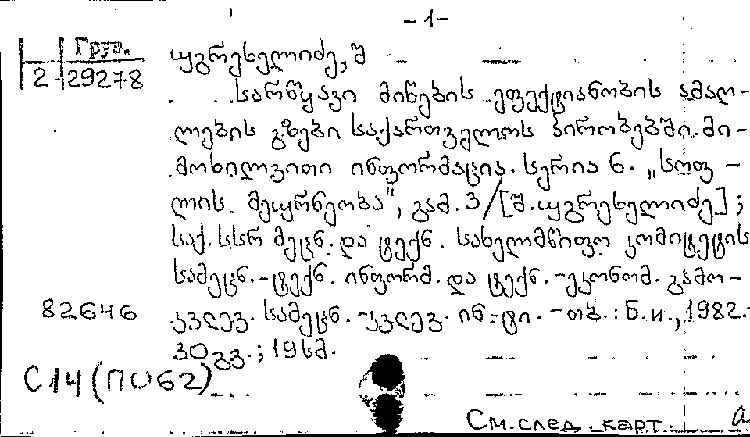 -1-
Груз.
2 29278
უგრეხელიძე, შ
სარწყავი მიწების ეფექტიანობის ამაღ-
ლების გზები საქართველოს პირობებში. მი-
მოხილვითი ინფორმაცია. სერია 6. „სოფ-
ლის მეურნეობა", გამ. 3/[შ. უგრეხელიძე];
საქ. სსრ მეცნ. და ტექნ. სახელმწიფო კომიტეტის
სამეცნ.-ტექნ. ინფორმ. და ტექნ.-ეკონომ. გამო-
82646 კვლევ. სამეცნ.-კვლევ. ინ-ტი. -თბ.: ბ.ი., 1982.-
30 გვ.; 19 სმ.
С14(ПО62)
См. след. карт. а